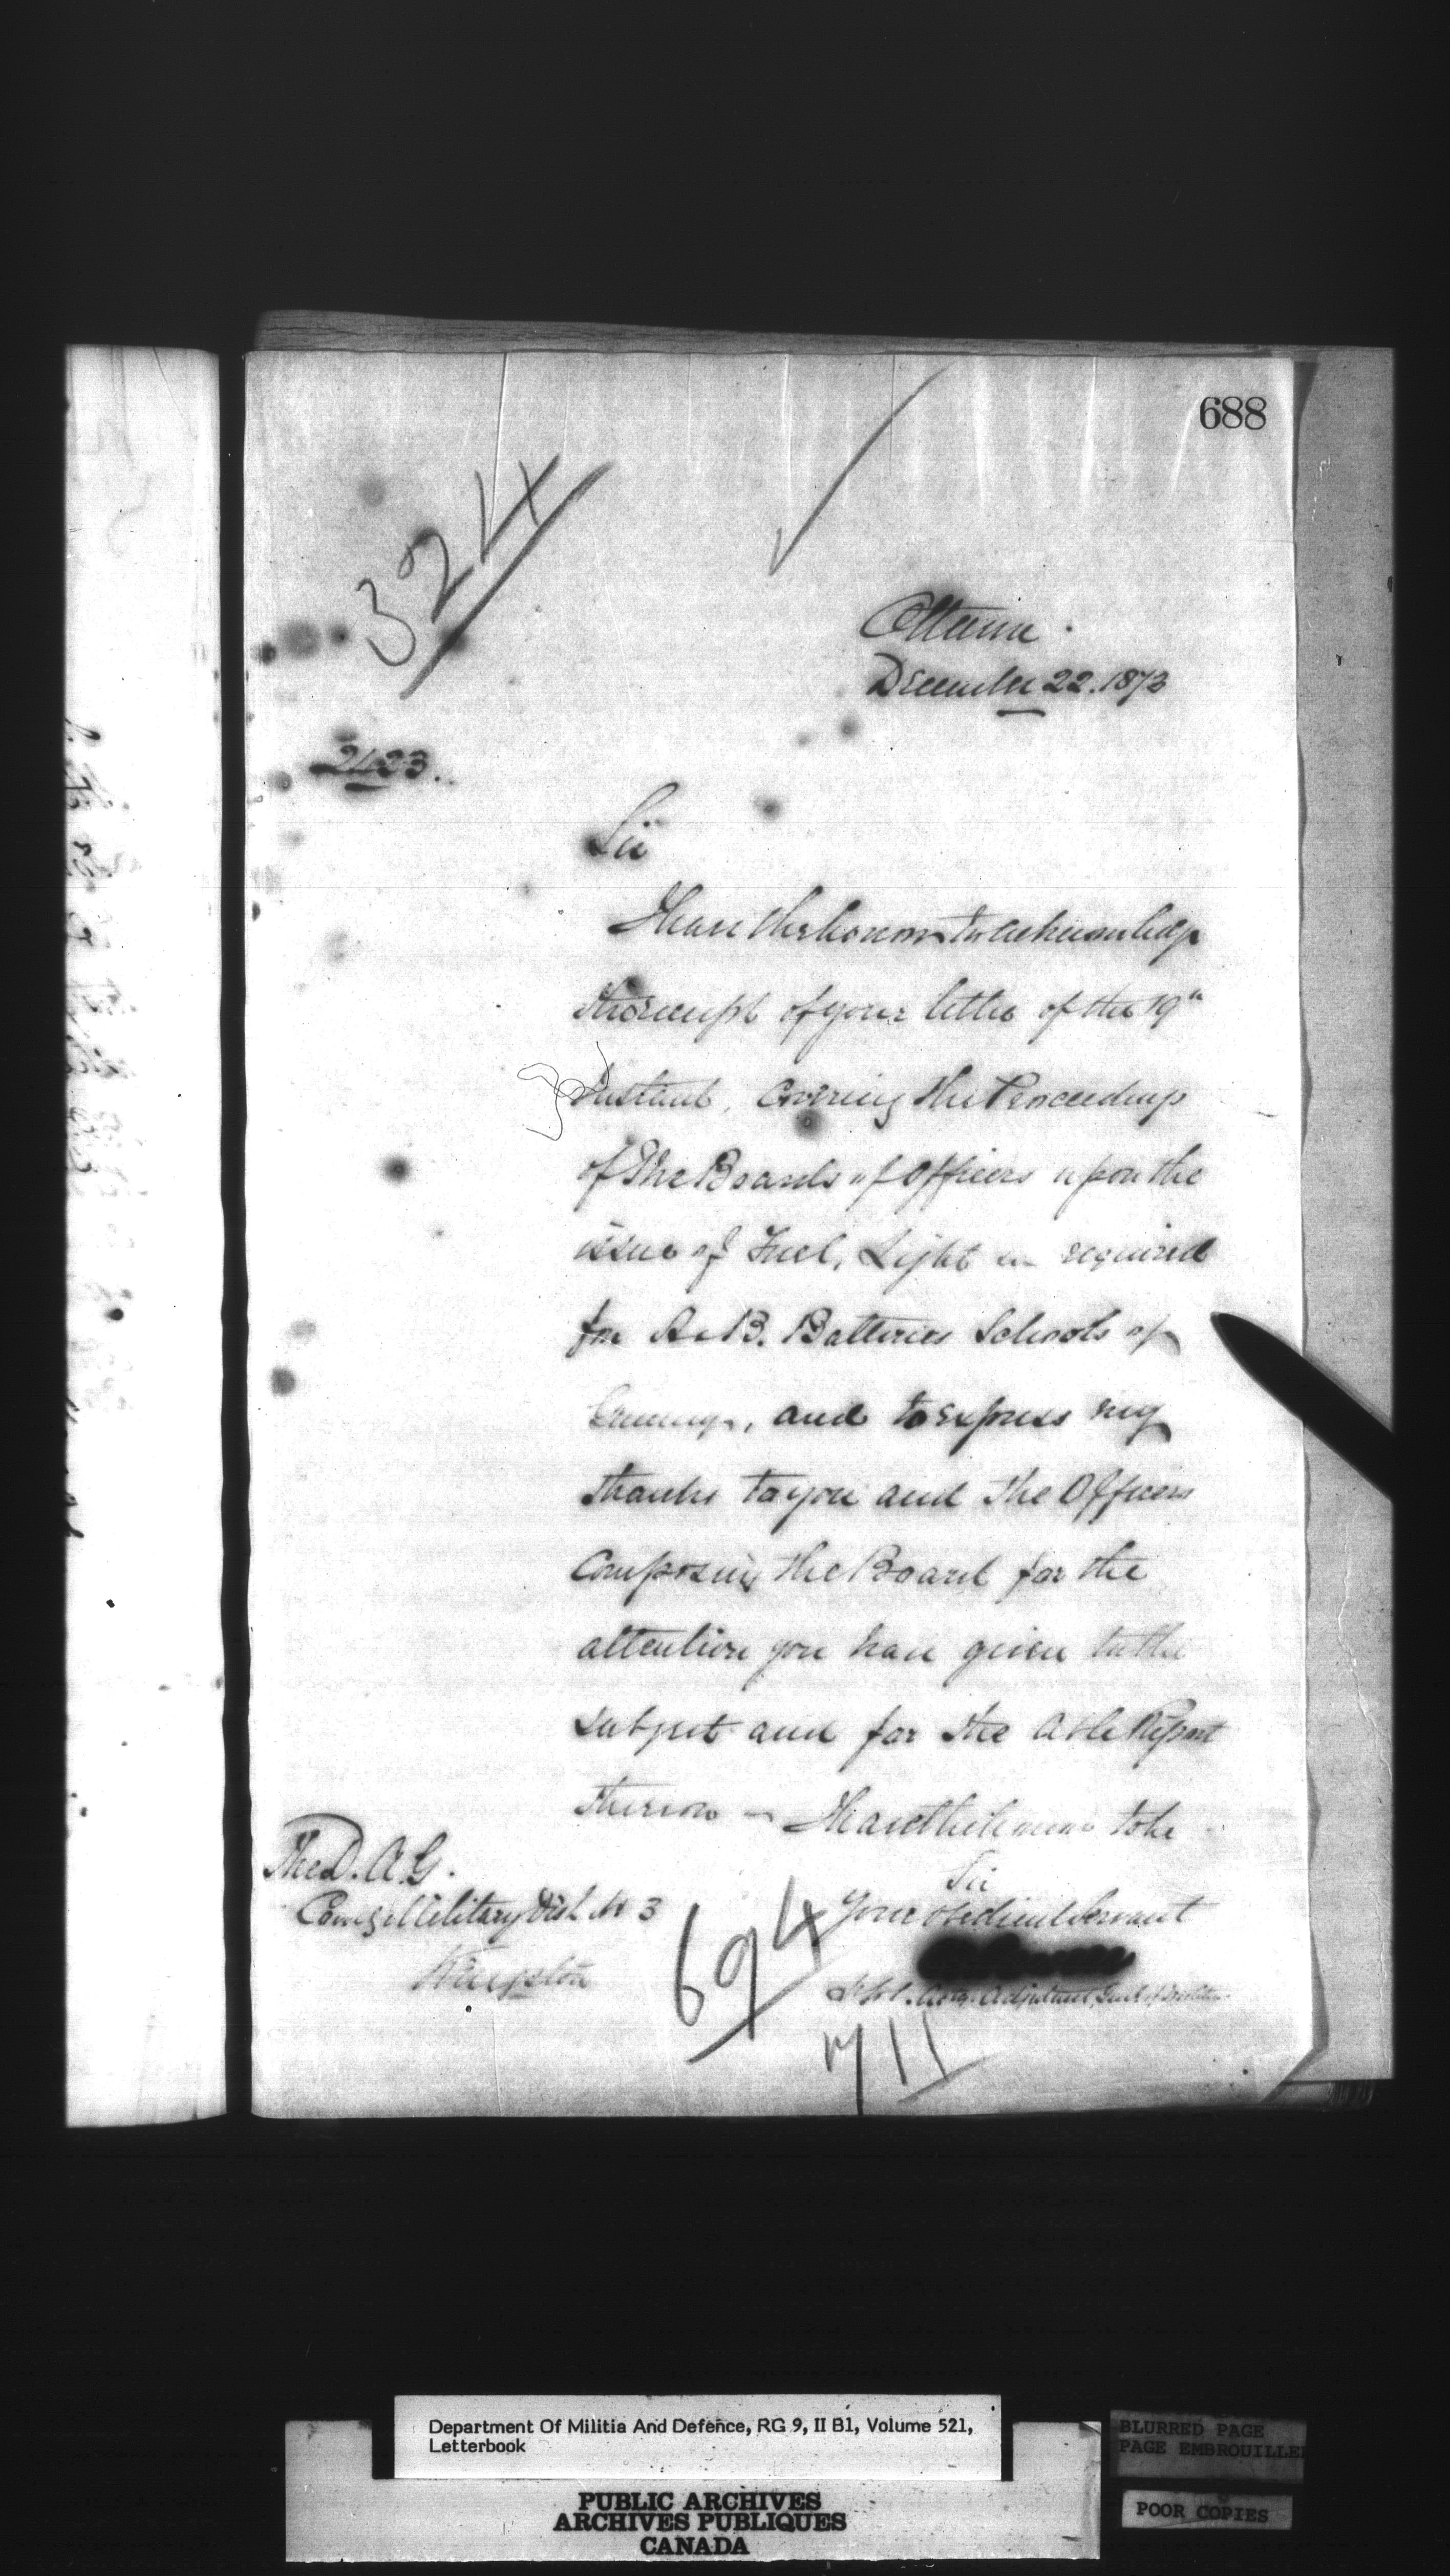 688
324
Ottawa.
December 22. 1873
2423.
Sir
I have the honor to acknowledge
the receipt of your letter of the 19"
Instant, covering the Proceedings
of the Boards of Officers upon the
issue of Fuel, Light required
for A & B. Batteries Schools of
Gunnery, and to express my
thanks to you and the Officers
Composing the Board for the
attention you have given to the
subject and for the able Report
thereon - I have the honor to be
Sir
Your obedient Servant
Actg. Adjutant Genl. of Militia
The D.A.G.
Comdg Military Dist No 3
Kingston
694
711
Department Of Militia And Defence, RG 9, II B1, Volume 521,
Letterbook
PUBLIC ARCHIVES
ARCHIVES PUBLIQUES
CANADA
BLURRED PAGE
PAGE EMBROUILLEE
POOR COPIES